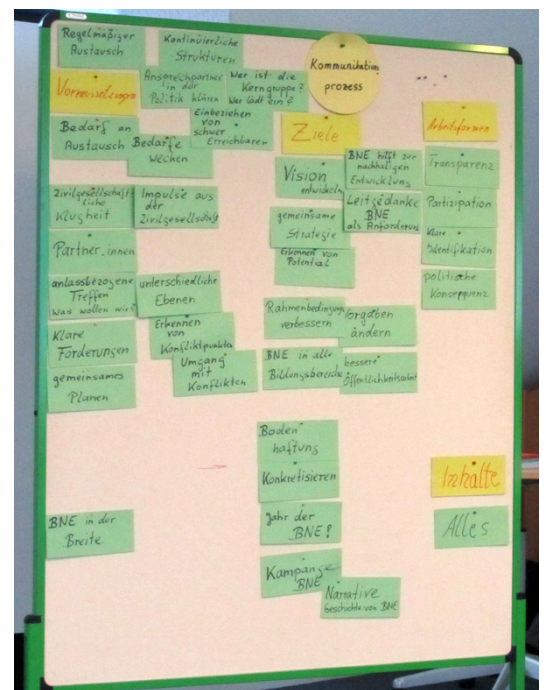 Regelmäßiger
Austausch
Kontinuierliche
Strukturen
Kommunikation
prozess
Voraussetzungen
Ansprechpartner
in der
Politik klären
Wer ist die
Kerngruppe?
Wer lädt ein?
Einbeziehen
von
schwer
Erreichbaren
Bedarf an
Austausch
Bedarfe
wecken
Zivilgesellschaft
liche
Klugheit
Impulse aus
der
Zivilgesellschaft
Partner.innen
anlassbezogene
Treffen
Was wollen wir?
unterschiedliche
Ebenen
Klare
Forderungen
Erkennen
von
Konfliktpunkten
Umgang
mit
Konflikten
gemeinsames
Planen
BNE in der
Breite
Ziele
Vision
entwickeln
BNE hilft zur
nachhaltigen
Entwicklung
Leitgedanke
BNE
als Anforderung
gemeinsame
Strategie
Erkennen von
Potential
Rahmenbedingungen
verbessern
Vorgaben
ändern
BNE in alle
Bildungsbereiche
bessere
Öffentlichkeitsarbeit
Boden
haftung
Konkretisieren
Jahr der
BNE!
Kampange
BNE
Narrative
Geschichte von BNE
Arbeitsformen
Transparenz
Partizipation
Klare
Identifikation
politische
Konsequenz
Inhalte
Alles